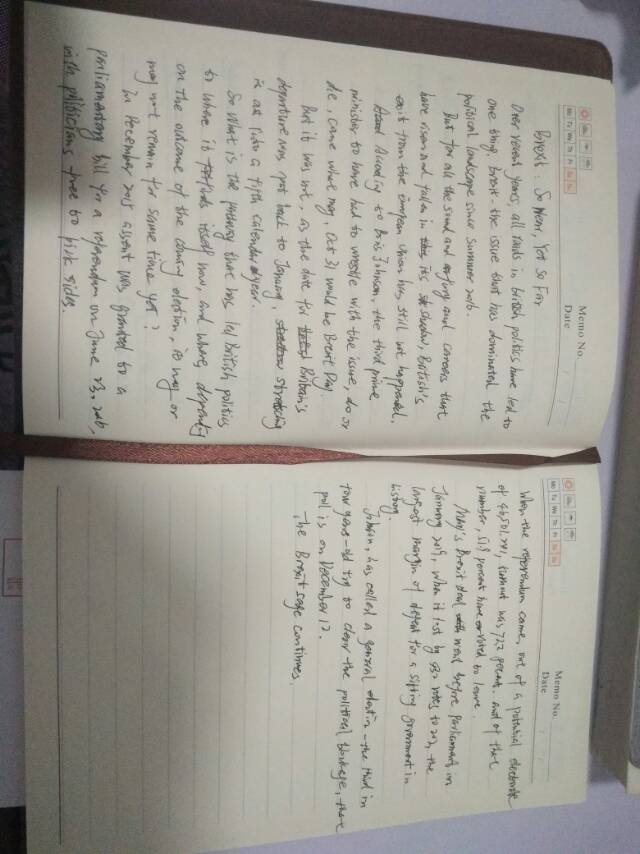 Memo No.
Date
Mo Tu We Th Fr Sa Su
Brexit: So Near, Yet So Far
Over recent years, all roads in british politics have led to
one thing. brexit - the issue that has dominated the
political landscape since summer 2016.
But for all the sound and and careers that
have risen and fallen in its shadow, British's
exit from the european Union has still not happened.
According to Boris Johnson, the third prime
minister to have had to wrestle with the issue, do or
die, come what may, Oct 31 would be Brexit Day
But it was not, as the date for Britain's
departure was put back to January, stretching
is as into a fifth calendar year.
So what is the journey that has led British politics
to where it finds itself now, and where, depending
on the outcome of the coming election, it may or
may not remain for some time yet?
in December 2015 assent was granted to a
parliamentary bill for a referendum on June 23, 2016,
with politicians free to pick sides.
Memo No.
Date
Mo Tu We Th Fr Sa Su
When the referendum came, out of a potential electorate
of 46,501,241, turnout was 72.2 percent. and of these
number, 51.9 percent have voted to leave.
May's Brexit deal went before parliament in
January 2019, when it lost by 432 votes to 202, the
largest margin of defeat for a sitting government in
history.
Johnson, has called a general election - the third in
four years - old try to clear the political blockage, the
poll is on December 12.
The Brexit sage continues.